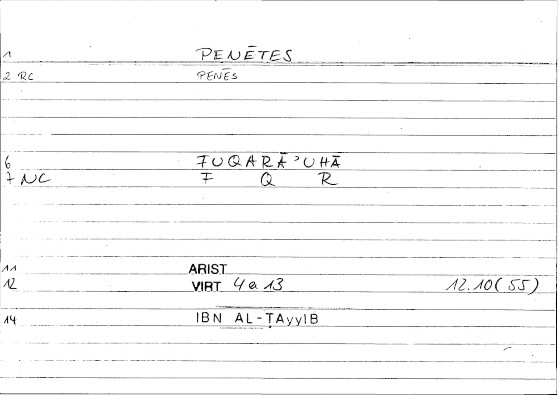 1 PENĒTES
2 RC PENĒS
6 FUQARĀʾUHĀ
7 NC F Q R
11 ARIST
12 VIRT 4a 13 12.10(55)
14 IBN AL-ṬAyyIB